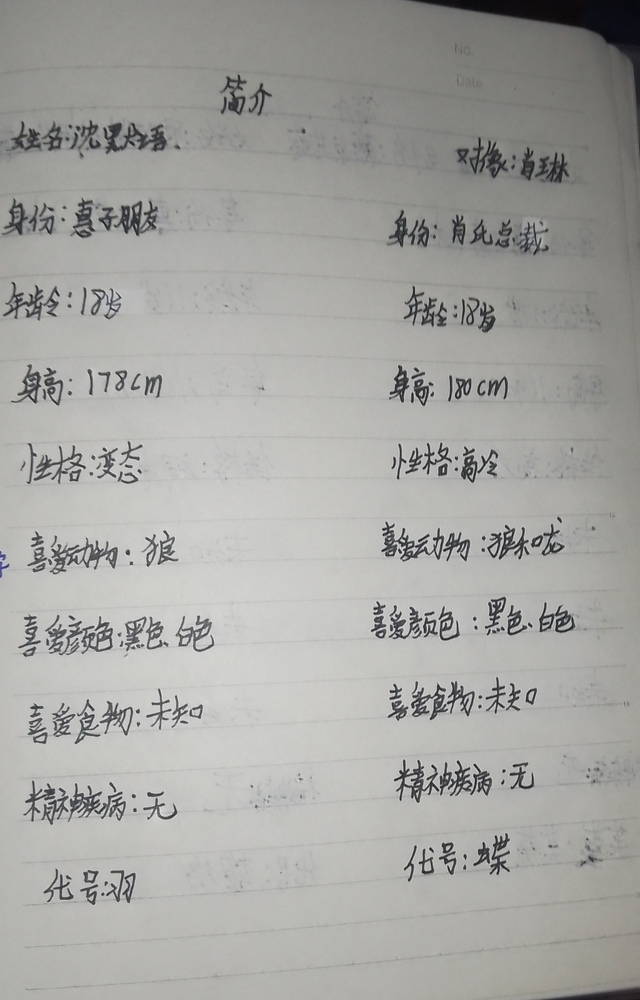 No.
Date
简介
姓名:沈
对象:肖
身份:惠子朋友
身份:肖氏总裁
年龄:18岁
年龄:18岁
身高:178cm
身高:180cm
性格:变态
性格:高冷
喜爱动物:狼
喜爱动物:狼
喜爱颜色:黑色、白色
喜爱颜色:黑色、白色
喜爱食物:未知
喜爱食物:未知
精神疾病:无
精神疾病:无
代号:羽
代号:蝶